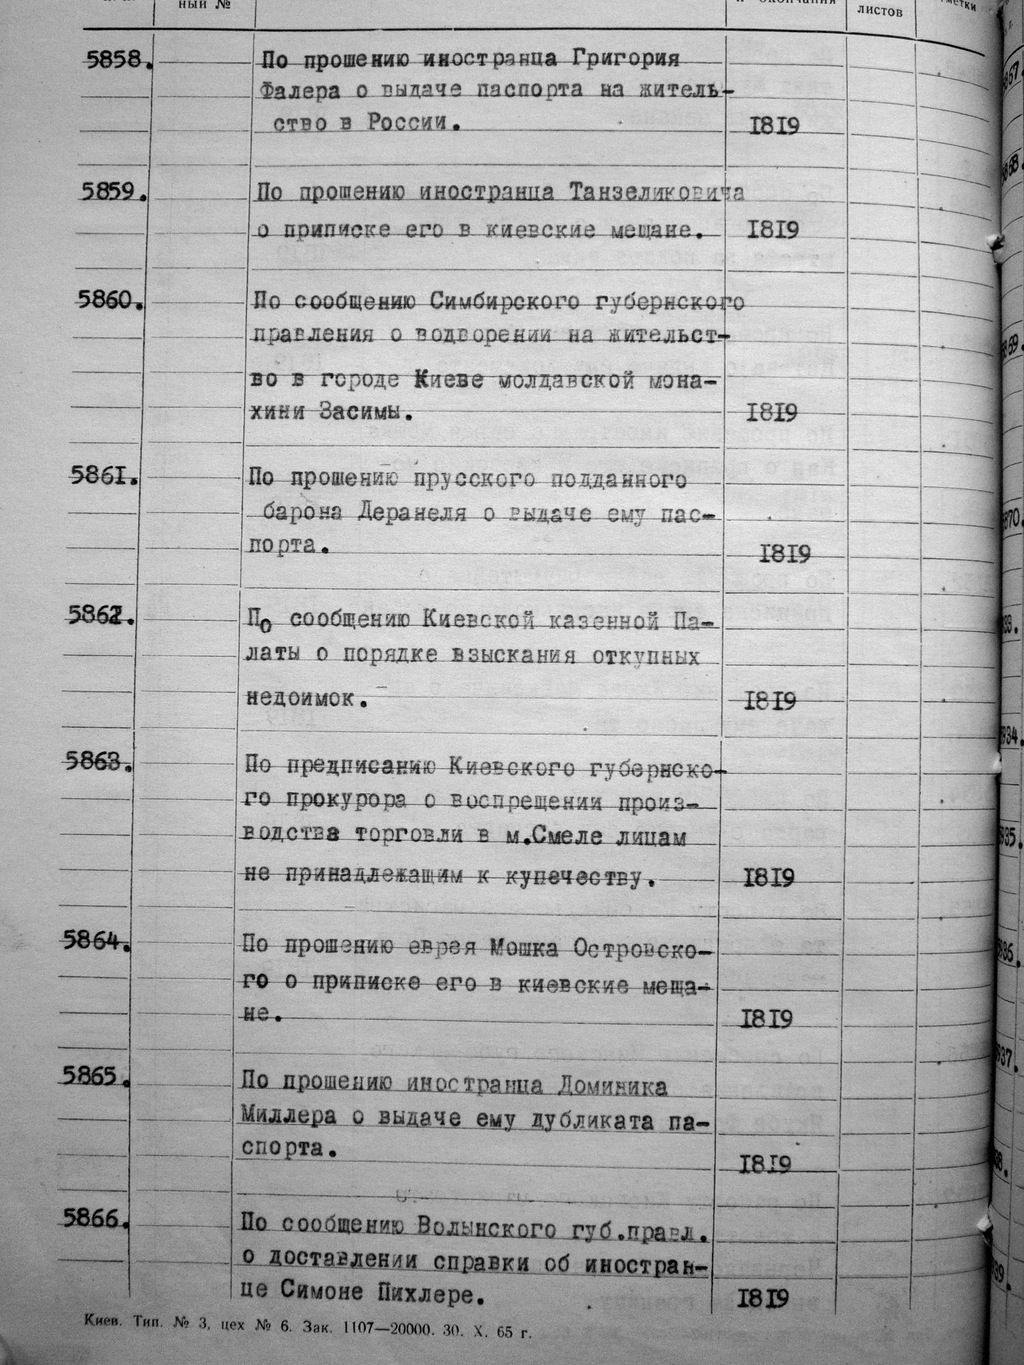 ный №
и окончания
листов
5858. По прошению иностранца Григория
Фалера о выдаче паспорта на житель-
ство в России. 1819
5859. По прошению иностранца Танзеликовича
о приписке его в киевские мещане. 1819
5860. По сообщению Симбирского губернского
правления о водворении на жительст-
во в городе Киеве молдавской мона-
хини Засимы. 1819
5861. По прошению прусского подданного
барона Деранеля о выдаче ему пас-
порта. 1819
5862. По сообщению Киевской казенной Па-
латы о порядке взыскания откупных
недоимок. 1819
5863. По предписанию Киевского губернско-
го прокурора о воспрещении произ-
водства торговли в м.Смеле лицам
не принадлежащим к купечеству. 1819
5864. По прошению еврея Мошка Островско-
го о приписке его в киевские меща-
не. 1819
5865. По прошению иностранца Доминика
Миллера о выдаче ему дубликата па-
спорта. 1819
5866. По сообщению Волынского губ.правл.
о доставлении справки об иностран-
це Симоне Пихлере. 1819
Киев. Тип. № 3, цех № 6. Зак. 1107—20000. 30. X. 65 г.